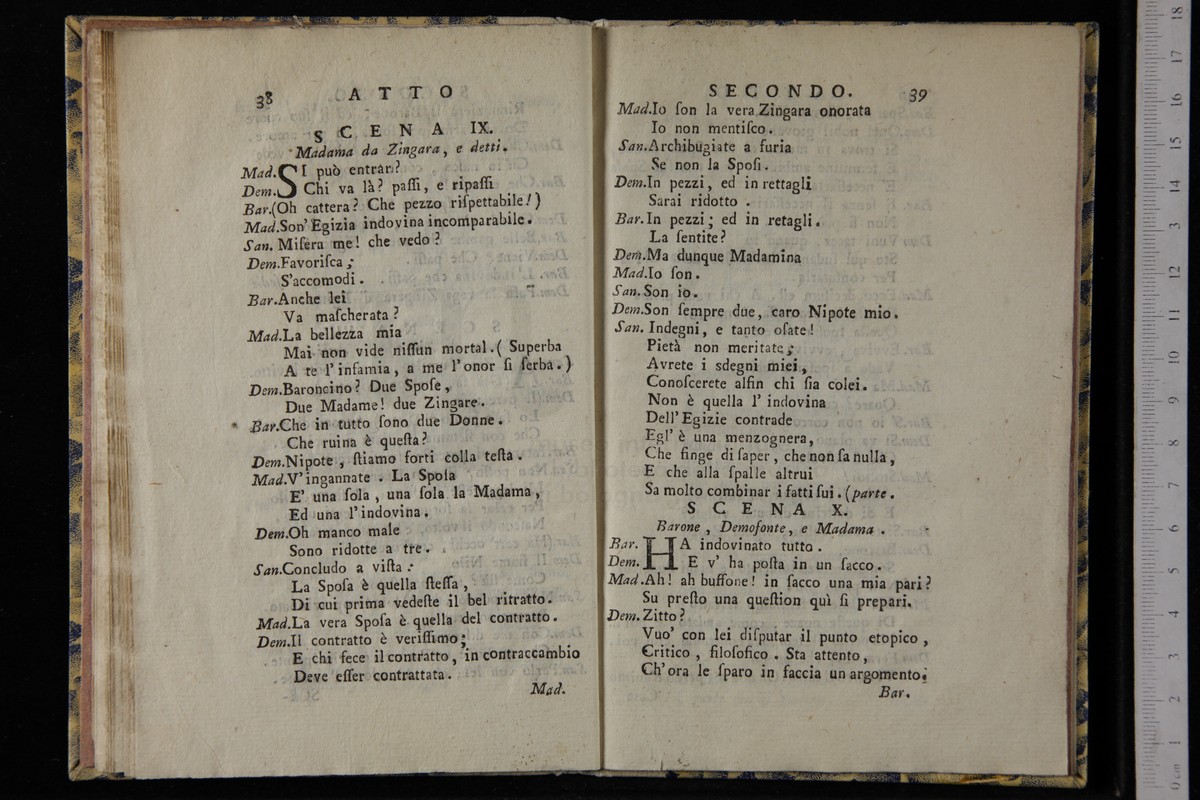 38 ATTO
SCENA IX.
Madama da Zingara, e detti.
Mad. SI può entrar?
Dem. Chi va là? paſſi, e ripaſſi
Bar. (Oh cattera? Che pezzo riſpettabile!)
Mad. Son' Egizia indovina incomparabile.
San. Miſera me! che vedo?
Dem. Favoriſca;
S'accomodi.
Bar. Anche lei
Va maſcherata?
Mad. La bellezza mia
Mai non vide niſſun mortal. (Superba
A te l'infamia, a me l'onor ſi ſerba.)
Dem. Baroncino? Due Spoſe,
Due Madame! due Zingare.
Bar. Che in tutto ſono due Donne.
Che ruina è queſta?
Dem. Nipote, ſtiamo forti colla teſta.
Mad. V'ingannate. La Spoſa
E' una ſola, una ſola la Madama,
Ed una l'indovina.
Dem. Oh manco male
Sono ridotte a tre.
San. Concludo a viſta:
La Spoſa è quella ſteſſa,
Di cui prima vedeſte il bel ritratto.
Mad. La vera Spoſa è quella del contratto.
Dem. Il contratto è veriſſimo;
E chi fece il contratto, in contraccambio
Deve eſſer contrattata.
Mad.
SECONDO. 39
Mad. Io ſon la vera Zingara onorata
Io non mentiſco.
San. Archibugiate a furia
Se non la Spoſi.
Dem. In pezzi, ed in rettagli
Sarai ridotto.
Bar. In pezzi; ed in retagli.
La ſentite?
Dem. Ma dunque Madamina
Mad. Io ſon.
San. Son io.
Dem. Son ſempre due, caro Nipote mio.
San. Indegni, e tanto oſate!
Pietà non meritate;
Avrete i sdegni miei,
Conoſcerete alfin chi ſia colei.
Non è quella l' indovina
Dell' Egizie contrade
Egl' è una menzognera,
Che finge di ſaper, che non ſa nulla,
E che alla ſpalle altrui
Sa molto combinar i fatti ſui. (parte.
SCENA X.
Barone, Demofonte, e Madama.
Bar. HA indovinato tutto.
Dem. E v' ha poſta in un ſacco.
Mad. Ah! ah buffone! in ſacco una mia pari?
Su preſto una queſtion quì ſi prepari.
Dem. Zitto?
Vuo' con lei diſputar il punto etopico,
Critico, filoſofico. Sta attento,
Ch'ora le ſparo in faccia un argomento;
Bar.